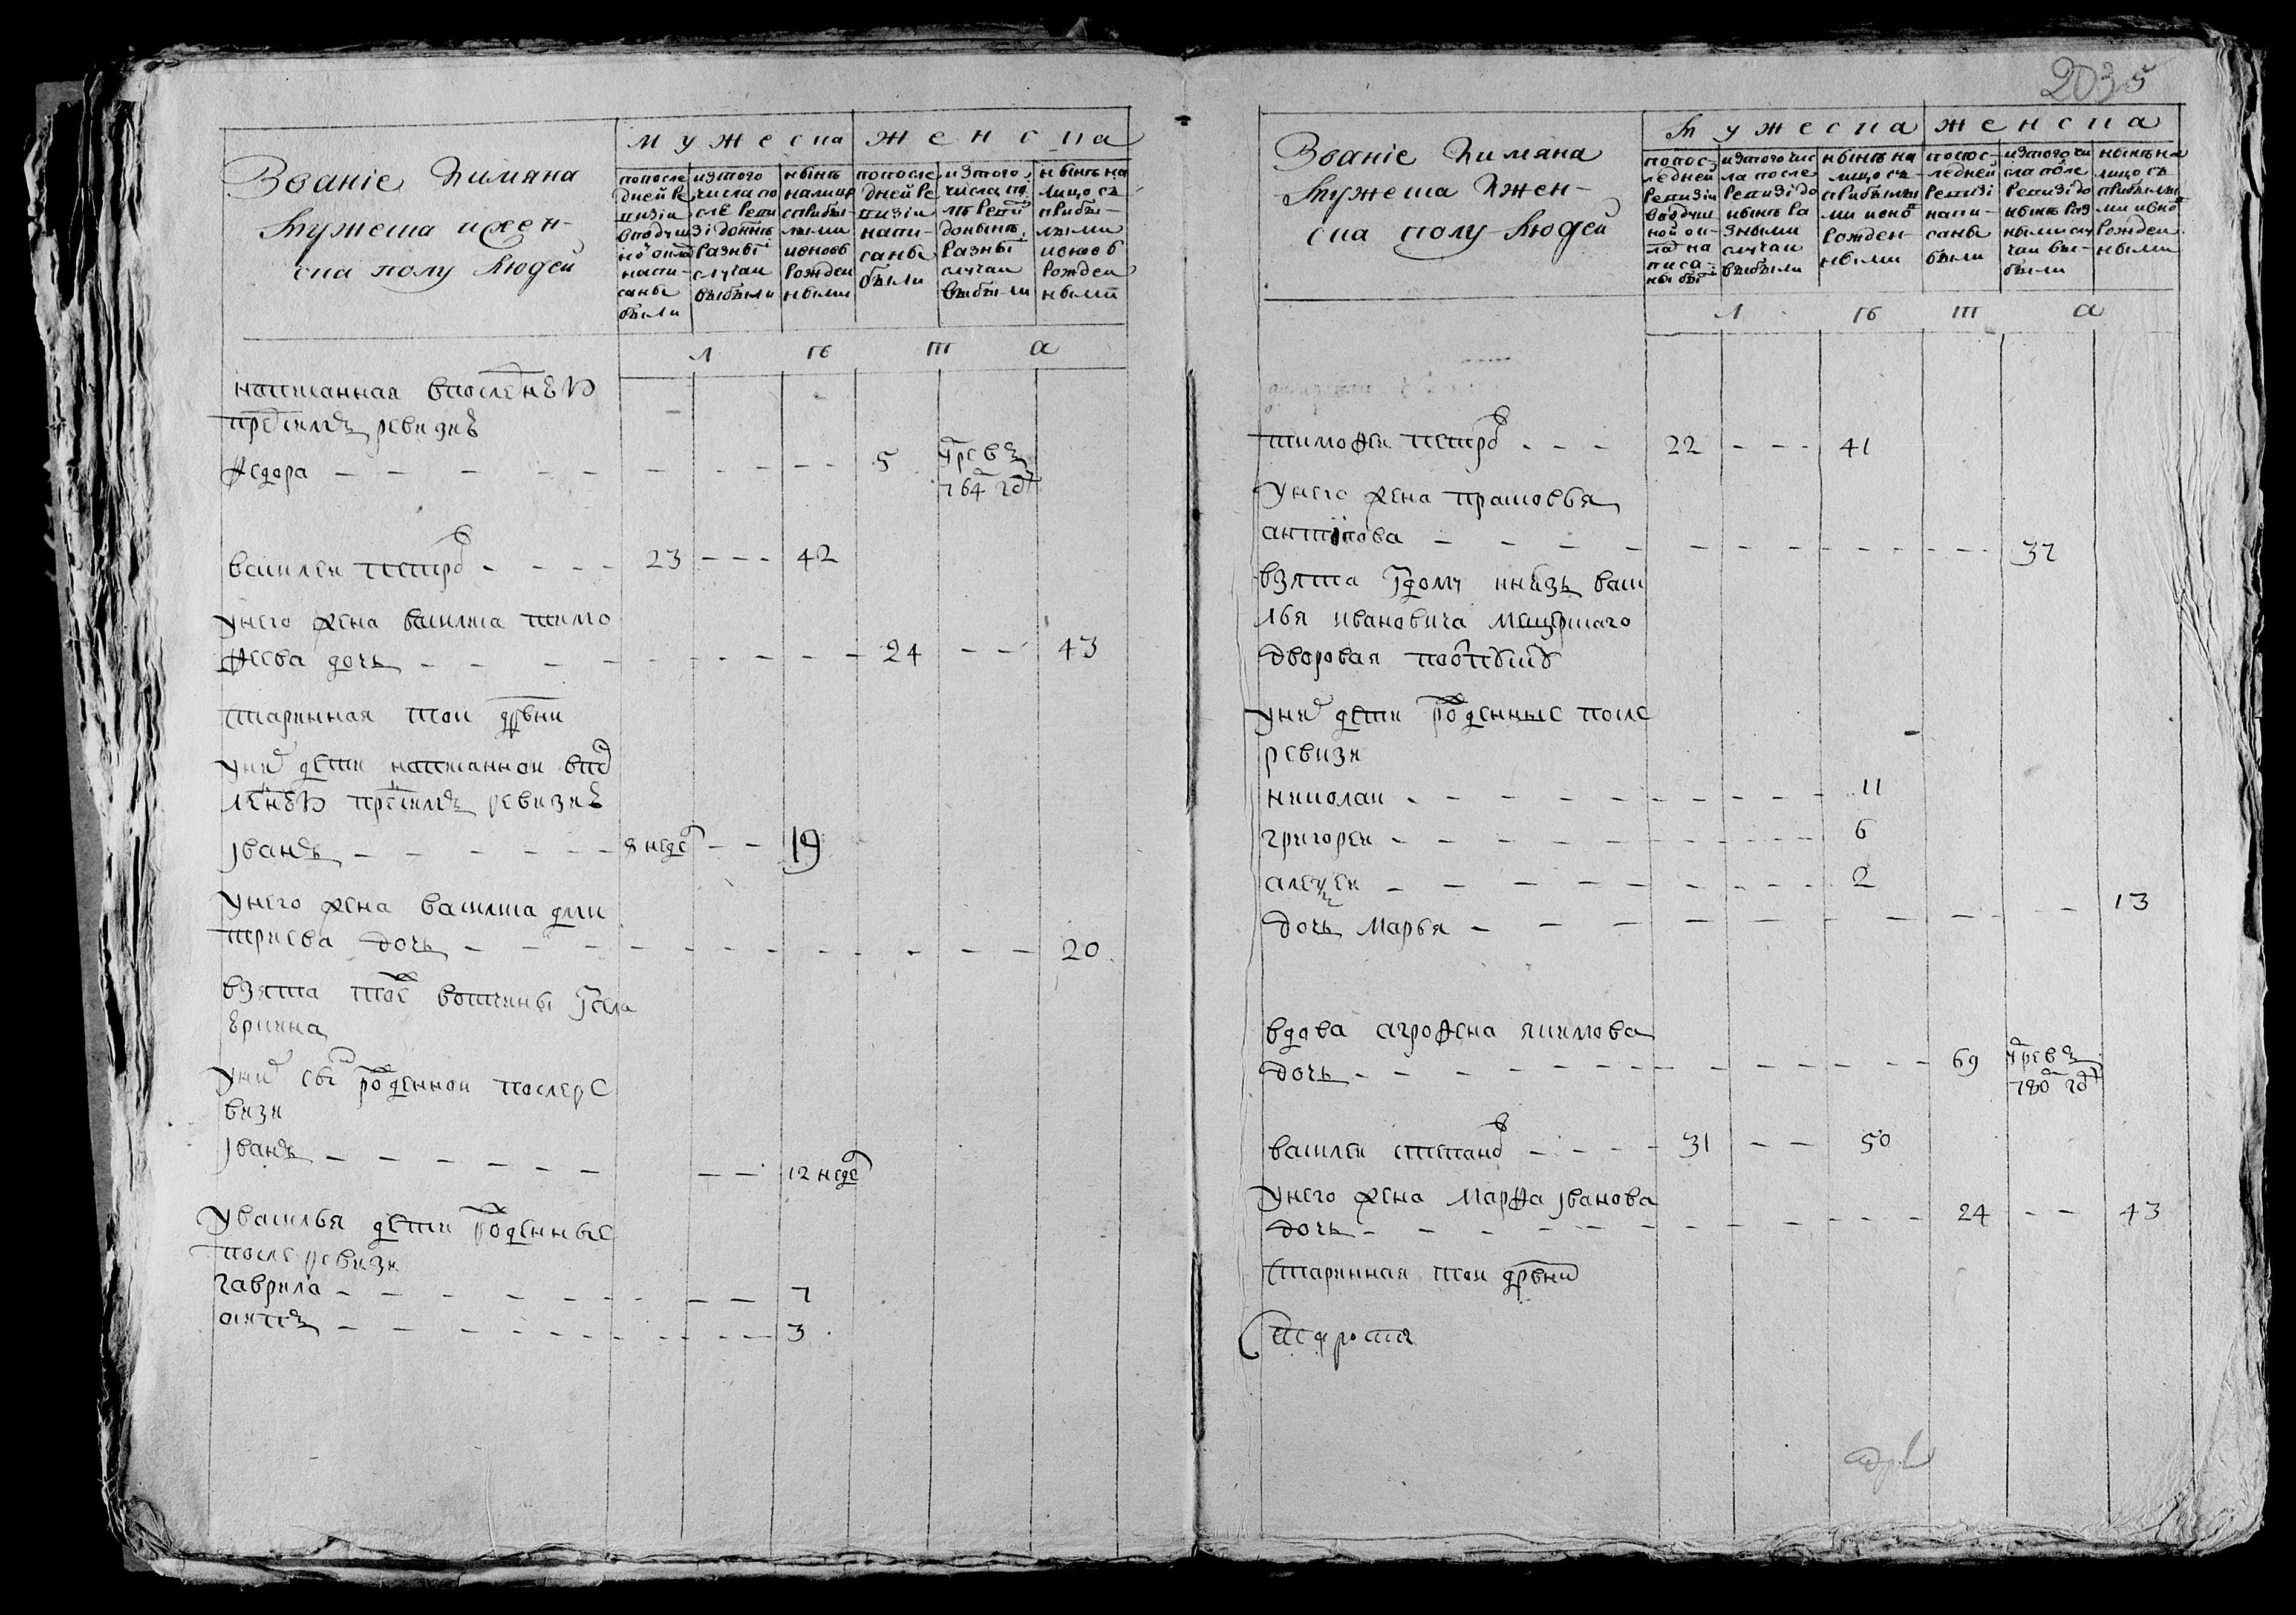 2035
Званіе Имяна
Мужеска ижен-
ска полу Людей
мужеска
женска
попосле
дней Ре
визіи
вподуш
но оклад
напи-
саны
были
изтого
числа по
сле Реви
зі донынѣ
Разны
случаи
выбыли
нынѣ
налицо
сприбы-
лыми
ивновь
Рожден
ными
попосле
дней Ре
визіи
напи-
саны
были
изтого
числа по
слѣ Реви
донынѣ
Разны
случаи
выбыли
нынѣ на
лицо съ
прибы-
лыми
ивновь
Рожден
ными
л ѣ т а
написанная впоследнеи
пред симъ ревизие
федора — — — — 5 умре въ
764 год
василеи петров - - - 23 - - - 42
унего жена василиса тимо
феева дочь - - - - 24 - - 43
старинная тои деревни
уних дети написаннои впос
леднеи пред симъ ревизие
Іванъ - - - - 8 недел - - 19
унего жена василиса дми
триева дочь - - - - 20
взята тоеж вотчины
уних сын рожденнои послере
визи
Іванъ - - - - - - 12 недел
Увасилья дети рожденные
после ревизи
гаврила - - - - 7
осипъ - - - - 3
Званіе Имяна
Мужеска Ижен-
ска полу Людей
Мужеска
женска
попос-
ледней
Ревизіи
вподуш
ной ок-
лад на
писа-
ны бы
изтого чис
ла после
Ревизі до
нынѣ Ра
зными
случаи
выбыли
нынѣ на
лицо съ
прибылы
ми ивно
Рожден-
ными
попос-
ледней
Ревизі
напи-
саны
были
изтого чи
сла после
Ревизі до
нынѣ Раз
ными слу
чаи вы-
были
нынѣ на
лицо съ
прибылы
ми ивно
Рожден
ными
л ѣ т а
тимофеи петров - - - 22 - - - 41
унего жена прасковья
антипова - - - - 37
взята князь васи
лья ивановича Мещерскаго
дворовая
уних дети рожденные после
ревизи
николаи - - - - 11
григореи - - - - 6
алексеи - - - - 2
дочь Марья - - - - 13
вдова агрофена якимова
дочь - - - - 69 умре въ
780 год
василеи степанов - - - - 31 - - 50
унего жена Марфа Іванова
дочь - - - - 24 - - 43
старинная тои деревни